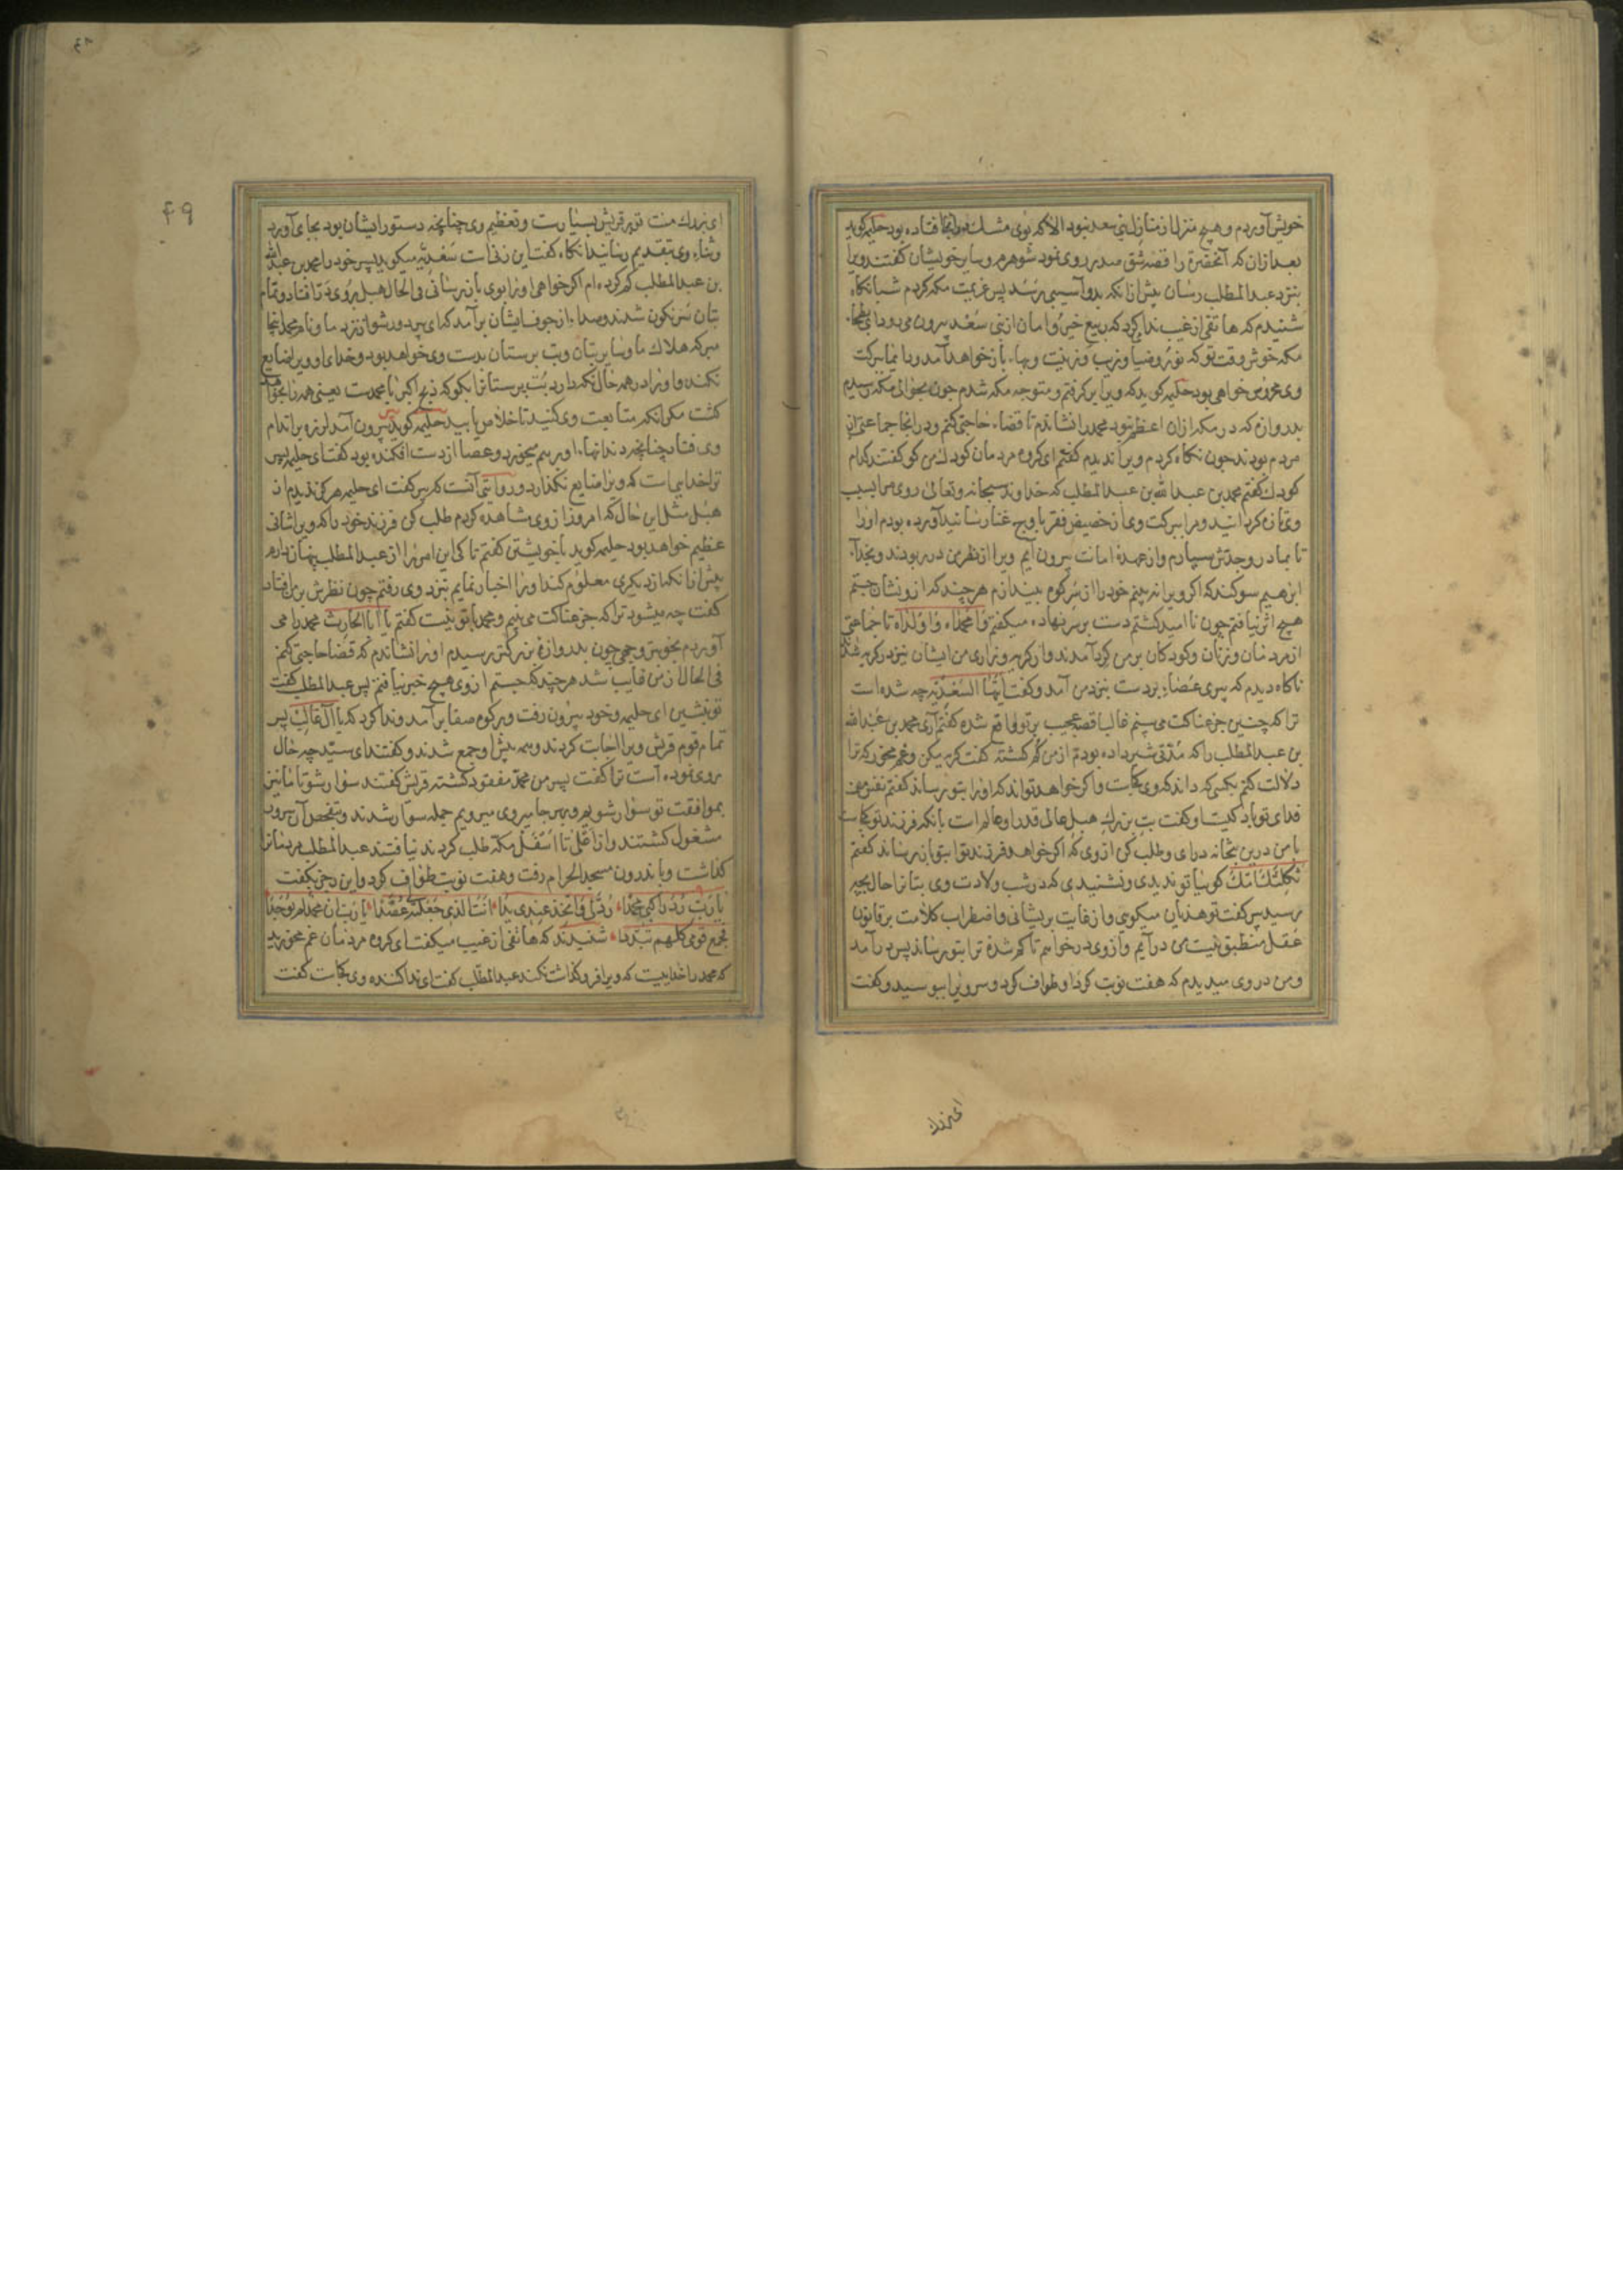 خویش آوردم و هیچ منزل از منازل بنی سعد نبود الا که بوی مشک در آنجا فتاده بود حلیمه کوید
بعد ازان که آنحضرة را قصه شق صدر روی نمود شوهرم و سایر خویشان کفتند ویرا
بنزد عبدالمطلب رسان پیش ازانکه بدو آسیبی رسد پس عزیمت مکه کردم شبانکاه
شنیدم که هاتفی از غیب ندا کرد که ربیع خیر و امان از بنی سعد بیرون می رود ای بطحاء
مکه خوش وقت تو که نور و ضیا و زیب و زینت و بهاء باز خواهد آمد و دایما ببرکت
وی محروس خواهی بود حلیمه کوید که ویرا بر کرفتم و متوجه مکه شدم چون بحوالی مکه رسیدم
بدروازه که در مکه ازان اعظم نبود محمد را نشاندم تا قضاء حاجتی کنم و در انجا جماعتی از
مردم بودند چون نکاه کردم ویرا ندیدم کفتم ای کروه مردمان کودک من کو کفتند کدام
کودک کفتم محمد بن عبدالله بن عبدالمطلب که خداوند سبحانه و تعالی روی مرا بسبب
وی تازه کردانید و مرا ببرکت وی از حضیض فقر باوج غنا رسانید آورده بودم اورا
تا بمادر و جدش سپارم و از عهدهٔ امانت بیرون آیم ویرا از نظر من در ربودند و بخدای
ابرهیم سوکند که اکر ویرا نه بینم خود را از سر کوه بیندازم هر چند که از و نشان جستم
هیچ اثر نیافتم چون نا امید کشتم دست بر سر نهاده میکفتم وا محمداه وا ولداه تا جماعتی
از مردمان و زنان و کودکان بر من کرد آمدند و از کریه و زاری من ایشان نیز در کریه شدند
ناکاه دیدم که پیری عصاء بردست بنزد من آمد و کفت ایتها السعدیه چه شده است
ترا که چنین جزعناکت می بینم غالبا قصه عجیب بر تو واقع شده کفتم آری محمد بن عبدالله
بن عبدالمطلب را که مدتی شیر داده بودم از من کم کشته کفت کریه مکن و غم مخور که ترا
دلالت کنم بکسی که داند که وی کجاست و اکر خواهد تواند که اورا بتو رساند کفتم نفس من
فدای تو باد کیست او کفت بت بزرک هبل عالی قدر او عالم است بانکه فرزند تو کجاست
با من درین بتخانه درای و طلب کن از وی که اکر خواهد فرزند ترا بتو باز رساند کفتم
ثکلتک امک کوئیا تو ندیدی و نشنیدی که در شب ولادت وی بتانرا حال بچه
رسید پیر کفت تو هذیان میکویی و از غایت پریشانی و اضطراب کلامت بر قانون
عقل منطبق نیست من درآیم و از وی درخواهم تا کم شدهٔ ترا بتو رساند پس در آمد
و من در وی میدیدم که هفت نوبت کرد او طواف کرد و سر ویرا ببوسید و کفت
ای بزرک
٤٣
۴۹
ای بزرک منت تو بر قریش بسیارست و تعظیم وی چنانچه دستور ایشان بود بجای آورد
وثناء وی بتقدیم رسانید انکاه کفت این زنی است سعدیه میکوید پسر خود را محمد بن عبدالله
بن عبدالمطلب کم کرده ام اکر خواهی اورا بوی باز رسانی فی الحال هبل بروی در افتاد و تمام
بتان سرنکون شدند و صداء از جوف ایشان بر آمد که ای پیر دور شو از نزد ما و نام محمد اینجا
مبر که هلاک ما و سایر بتان و بت پرستان بدست وی خواهد بود و خدای او ویرا ضایع
نکند و اورا در همه حال نکه دارد بت پرستانرا بکو که ذبح اکبر با محمدست یعنی همه را بخواهد
کشت مکر انکه متابعت وی کنید تا خلاص یابید حلیمه کوید پیر بیرون آمد لرزه بر اندام
وی فتاد چنانچه دندانهاء او بر هم میخورد و عصا از دست افکنده بود کفت ای حلیمه پسر
ترا خدایی است که ویرا ضایع نکذارد و روایتی آنست که پیر کفت ای حلیمه هرکز ندیدم از
هبل مثل این حال که امروز از وی مشاهده کردم طلب کن فرزند خود را که ویرا شانی
عظیم خواهد بود حلیمه کوید با خویشتن کفتم تا کی این امر را از عبدالمطلب پنهان دارم
پیش ازانکه از دیکری معلوم کند اورا اخبار نمایم بنزد وی رفتم چون نظرش بر من افتاد
کفت چه میشود ترا که جزعناکت می بینم و محمد با تو نیست کفتم یا ابا الحارث محمد را می
آوردم بخوشتر وجهی چون بدروازهٔ بزرکتر رسیدم اورا نشاندم که قضا حاجتی کنم
فی الحال از من غایب شد هرچند که جستم از وی هیچ خبر نیافتم پس عبدالمطلب کفت
تو بنشین ای حلیمه و خود بیرون رفت و بر کوه صفا بر آمد و ندا کرد که یا آل غالب پس
تمام قوم قریش ویرا اجابت کردند و همه پیش او جمع شدند و کفتند ای سید چه حال
روی نموده است ترا کفت پسر من محمد مفقود کشته قریش کفتند سوار شو تا ما نیز
بموافقت تو سوار شویم و بهر جا میروی میرویم جمله سوار شدند و بتفحص آن سرور
مشغول کشتند و از اعلی تا اسفل مکه طلب کردند نیافتند عبدالمطلب مردمانرا
کذاشت و باندرون مسجد الحرام رفت و هفت نوبت طواف کرد و این رجز بکفت
یا رب رد راکبی محمدا رد الی واتخذ عندی یدا انت الذی جعلته عضدا یا رب ان محمد لم یوجدا
فجمع قومی کلهم تبددا شنیدند که هاتفی از غیب میکفت ای کروه مردمان غم مخورید
که محمد را خداییست که ویرا فرو نکذاشت نکند عبدالمطلب کفت ای ندا کننده وی کجاست کفت